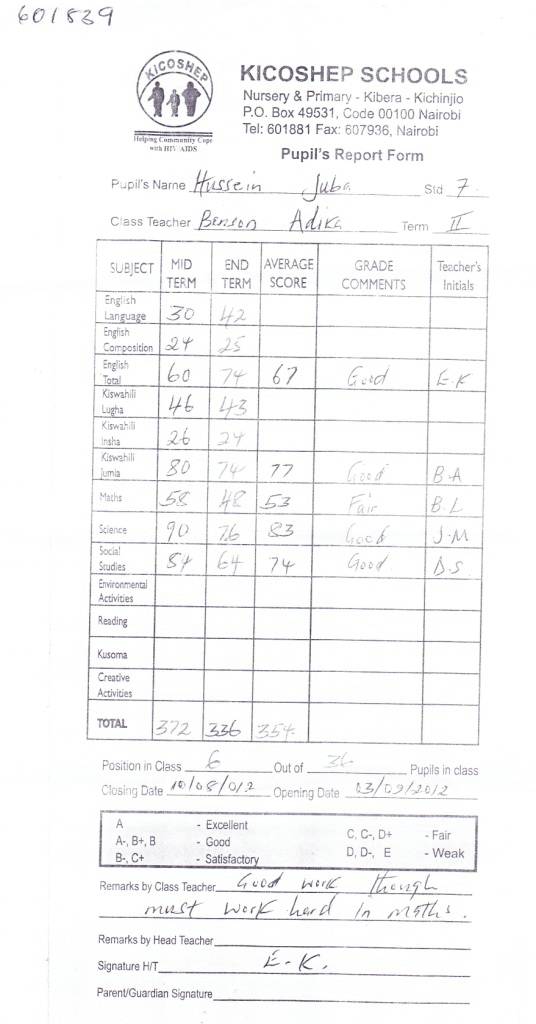 601839
KICOSHEP
Helping Community Cope
with HIV/AIDS
KICOSHEP SCHOOLS
Nursery & Primary - Kibera - Kichinjio
P.O. Box 49531, Code 00100 Nairobi
Tel: 601881 Fax: 607936, Nairobi
Pupil's Report Form
Pupil's Name Hussein Juba Std 7
Class Teacher Benson Adika Term II
SUBJECT MID TERM END TERM AVERAGE SCORE GRADE COMMENTS Teacher's Initials
English Language 30 42
English Composition 24 25
English Total 60 74 67 Good E.K
Kiswahili Lugha 46 43
Kiswahili Insha 26 24
Kiswahili Jumla 80 74 77 Good B.A
Maths 58 48 53 Fair B.L
Science 90 76 83 Good J.M
Social Studies 84 64 74 Good D.S
Environmental Activities
Reading
Kusoma
Creative Activities
TOTAL 372 336 354
Position in Class 6 Out of Pupils in class
Closing Date 10/08/012 Opening Date 03/09/2012
A - Excellent C, C-, D+ - Fair
A-, B+, B - Good D, D-, E - Weak
B-, C+ - Satisfactory
Remarks by Class Teacher Good work though
must work hard in maths.
Remarks by Head Teacher
Signature H/T E.K.
Parent/Guardian Signature